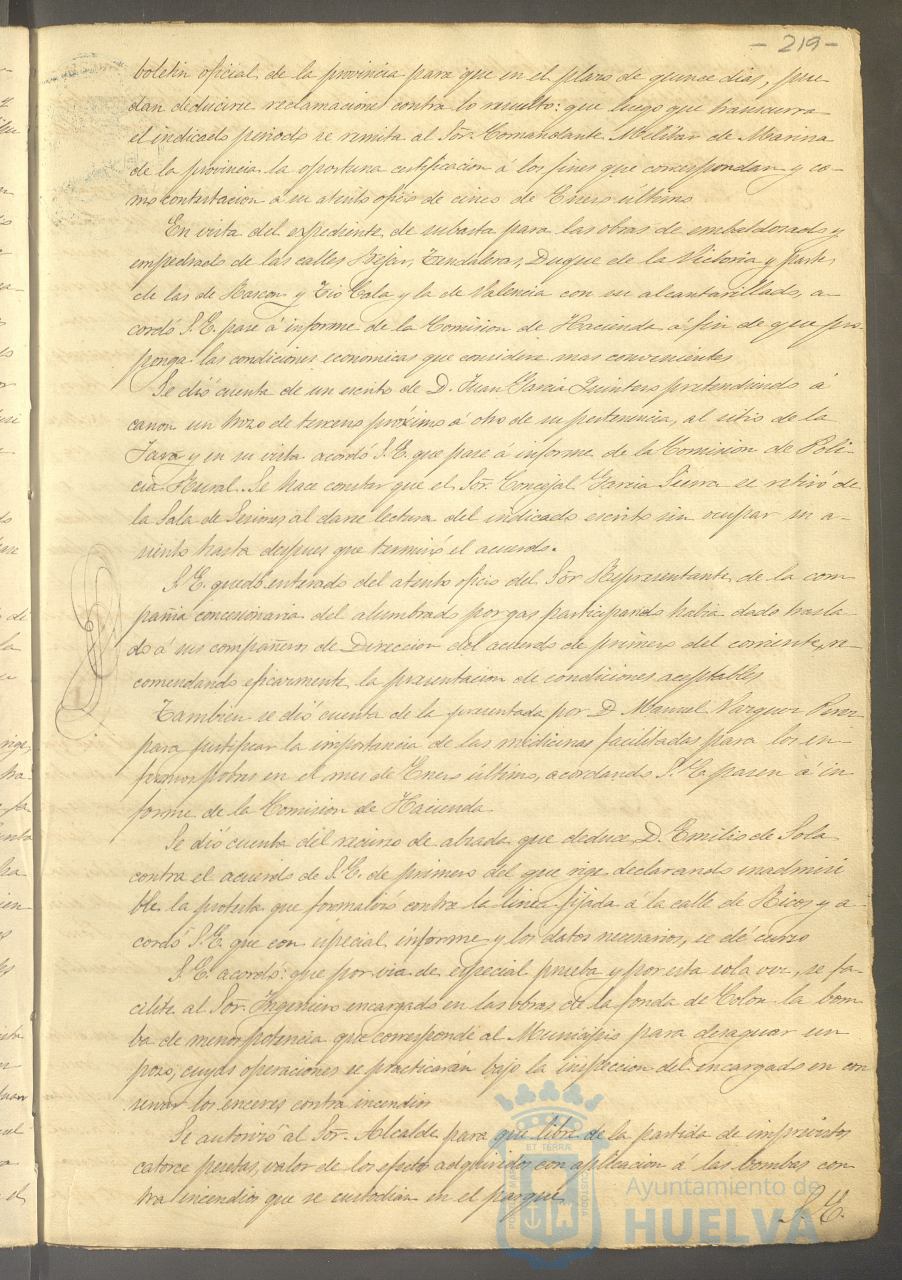 - 219 -
boletin oficial de la provincia para que en el plazo de quince dias, pue-
dan deducirse reclamaciones contra lo resuelto: que luego que transcurra
el indicado periodo se remita al Sor. Comandante Militar de Marina
de la provincia la oportuna certificacion á los fines que correspondan y co-
mo contestacion á su atento oficio de cinco de Enero último
En vista del expediente de subasta para las obras de embaldosado y
empedrado de las calles Béjar, Tendaleras, Duque de la Victoria y parte
de las de Rascon y Tio Cala y la de Valencia con su alcantarillado, a-
cordó S.E. pase á informe de la Comision de Hacienda á fin de que pro-
ponga las condiciones economicas que considere mas convenientes
Se dió cuenta de un escrito de D. Juan Garcia Quintero pretendiendo á
canon un trozo de terreno próximo á otro de su pertenencia, al sitio de la
y en su vista acordó S.E. que pase á informe de la Comision de Poli-
cia Rural. Se hace constar que el Sor. Concejal Garcia Sierra se retiró de
la Sala de Sesiones al darse lectura del indicado escrito sin ocupar su a-
siento hasta despues que terminó el acuerdo.
S.E. quedó enterado del atento oficio del Sor. Representante de la com-
pañia concesionaria del alumbrado por gas participando habia dado trasla-
do á sus compañeros de Direccion del acuerdo de primero del corriente, re-
comendando eficazmente la presentacion de condiciones aceptables
Tambien se dió cuenta de la presentada por D. Manuel Vazquez Perez
para justificar la importancia de las medicinas facilitadas para los en-
fermos pobres en el mes de Enero último, acordando S.E. pasen á in-
forme de la Comision de Hacienda
Se dió cuenta del recurso de alzada que deduce D. Emilio de Sola
contra el acuerdo de S.E. de primero del que rige declarando inadmisi
ble la protesta que formalizó contra la linea fijada á la calle de Ricos y a-
cordó S.E. que con especial informe y los datos necesarios, se dé curso
S.E. acordó: que por via de especial prueba y por esta sola vez, se fa-
cilite al Sor. Ingeniero encargado en las obras de la fonda de Colon la bom-
ba de menor potencia que corresponde al Municipio para desaguar un
pozo, cuyas operaciones se practicarán bajo la inspeccion del encargado en con
servar los enceres contra incendios
Se autorizó al Sor. Alcalde para que libre de la partida de imprevistos
catorce pesetas, valor de los efectos adquiridos con aplicacion á las bombas con
tra incendios que se custodian en el parque
S.E.
Ayuntamiento de
HUELVA